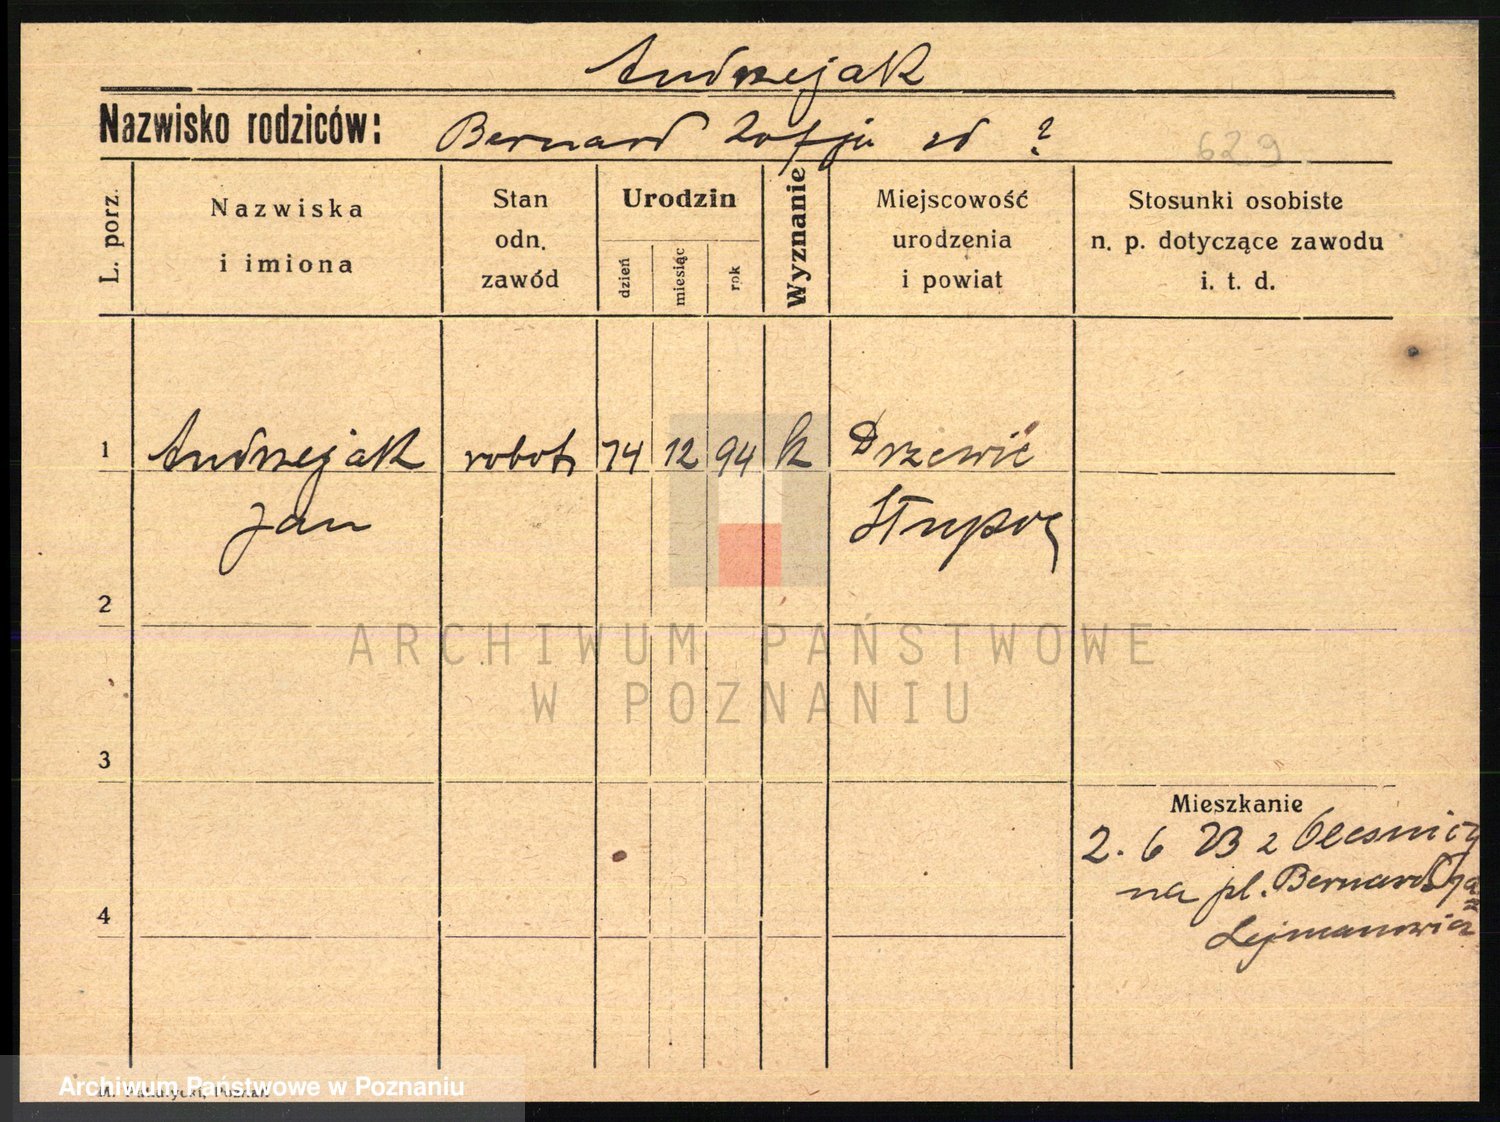 Andrzejak
Nazwisko rodziców: Bernard Zofja zd ?
629
L. porz.
Nazwiska
i imiona
Stan
odn.
zawód
Urodzin
dzień
miesiąc
rok
Wyznanie
Miejscowość
urodzenia
i powiat
Stosunki osobiste
n. p. dotyczące zawodu
i. t. d.
1 Andrzejak robot 14 12 94 k
Jan
2
ARCHIWUM PAŃSTWOWE
W POZNANIU
3
Mieszkanie
2. 6 23 z Olesnicy
na pl.
4
Archiwum Państwowe w Poznaniu